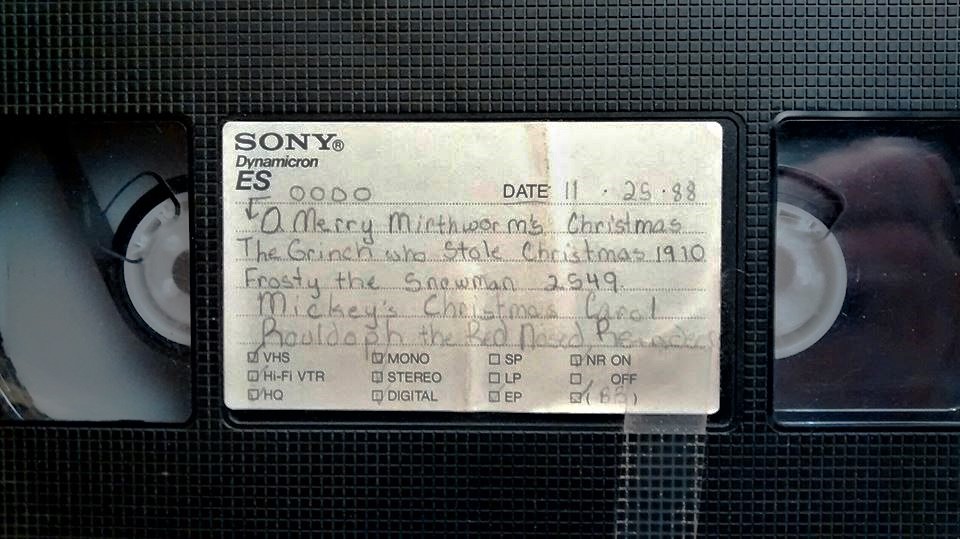 SONY®
Dynamicron
ES 0000 DATE 11 · 25 · 88
A Merry Mirthworm's Christmas
The Grinch who Stole Christmas 1910
Frosty the Snowman 2549
Mickey's Christmas Carol
Rouldoph the Red Nosed
VHS MONO SP NR ON
Hi-Fi VTR STEREO LP OFF
HQ DIGITAL EP